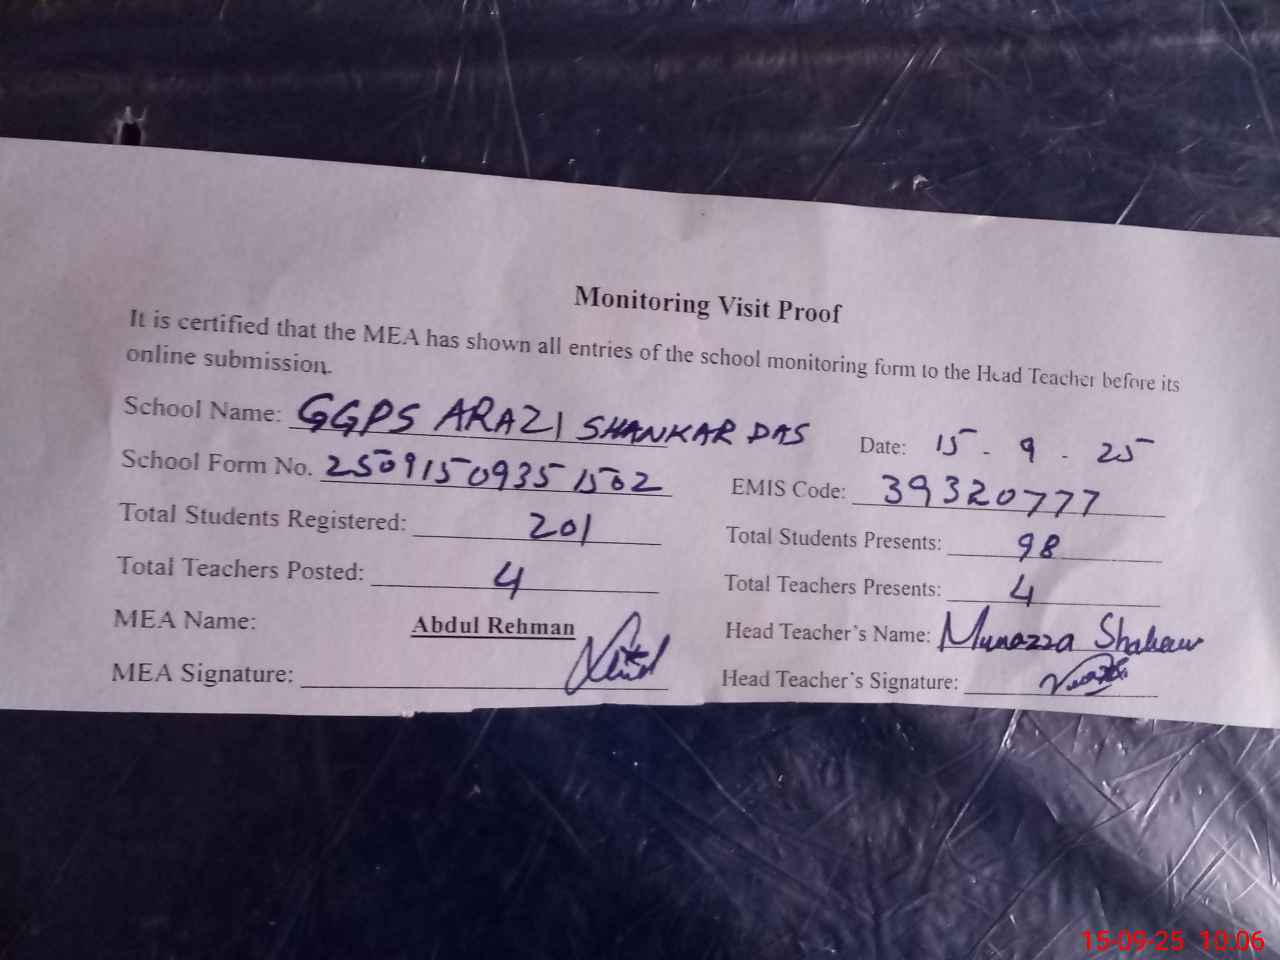 Monitoring Visit Proof
It is certified that the MEA has shown all entries of the school monitoring form to the Head Teacher before its
online submission.
School Name: GGPS ARAZI SHANKAR DAS Date: 15 - 9 - 25
School Form No. 25091509351502 EMIS Code: 39320777
Total Students Registered: 201 Total Students Presents: 98
Total Teachers Posted: 4 Total Teachers Presents: 4
MEA Name: Abdul Rehman Head Teacher's Name: Munazza Shaheen
MEA Signature: Head Teacher's Signature:
15-09-25 10:06